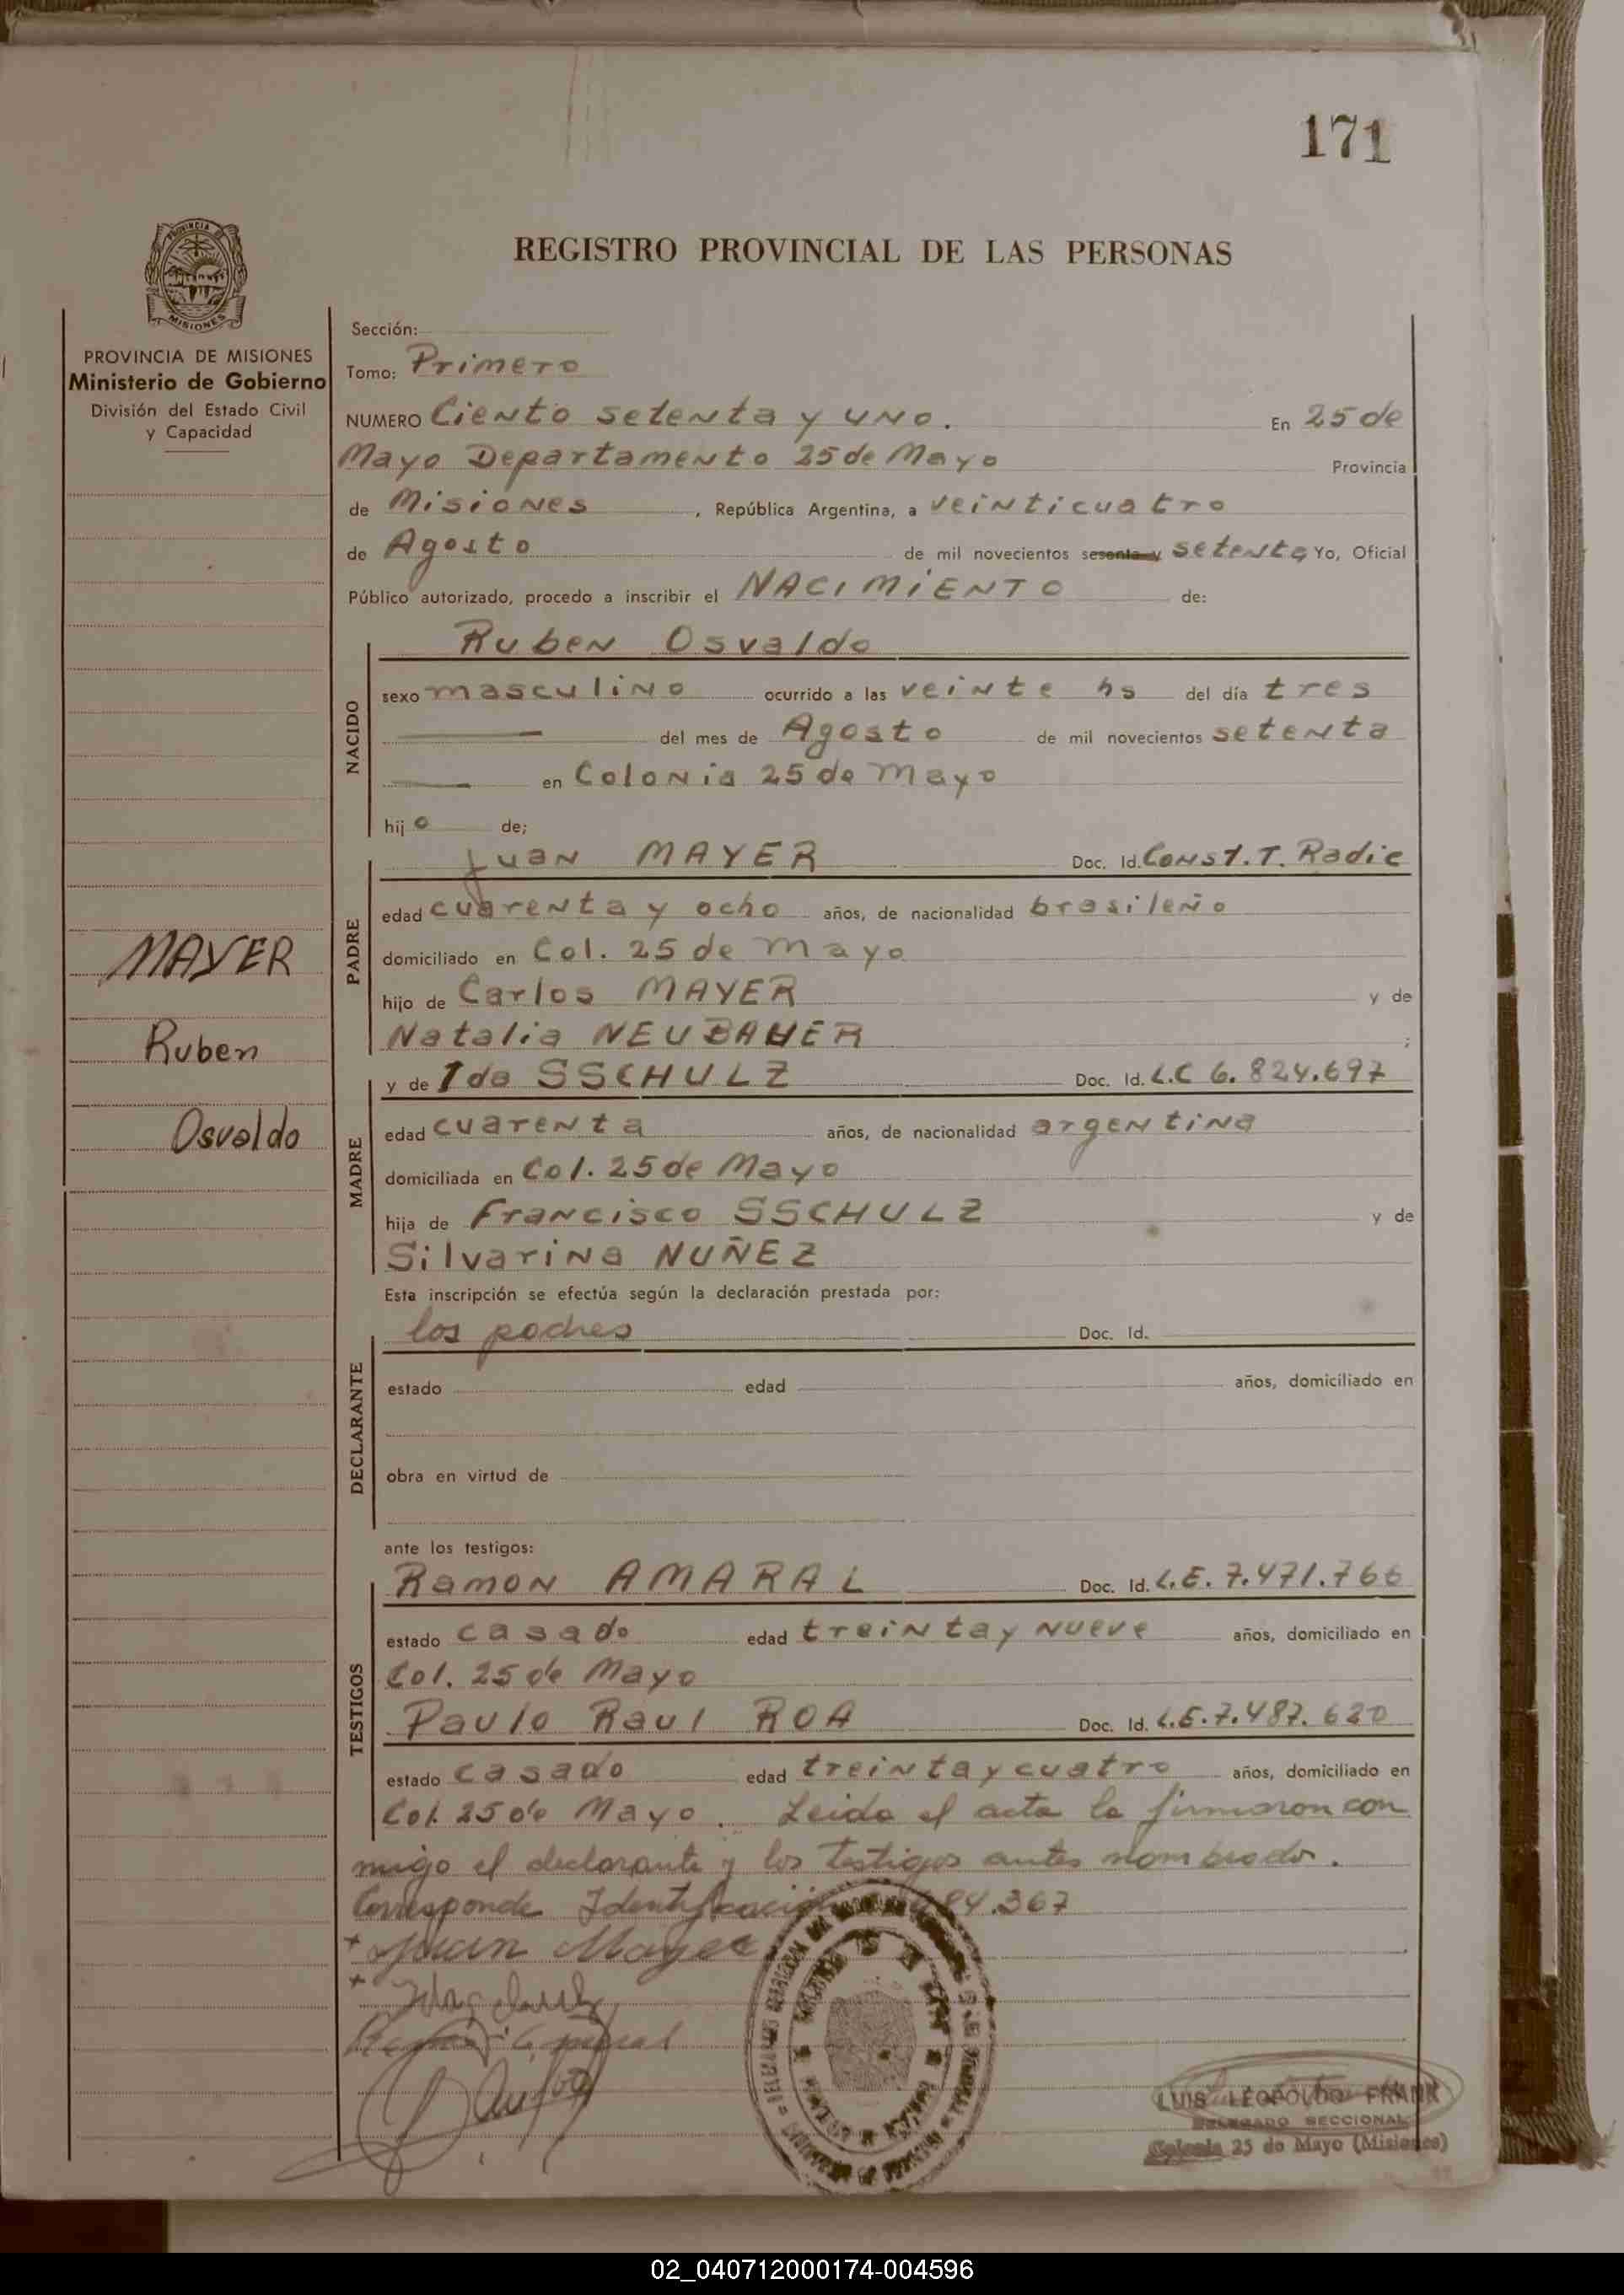 171
REGISTRO PROVINCIAL DE LAS PERSONAS
PROVINCIA DE MISIONES
Ministerio de Gobierno
División del Estado Civil
y Capacidad
MAYER
Ruben
Osvaldo
Sección:
Tomo: Primero
NUMERO Ciento setenta y uno. En 25 de
Mayo Departamento 25 de Mayo Provincia
de Misiones, República Argentina, a veinticuatro
de Agosto de mil novecientos sesenta y setenta Yo, Oficial
Público autorizado, procedo a inscribir el NACIMIENTO de:
NACIDO
Ruben Osvaldo
sexo masculino ocurrido a las veinte hs del día tres
del mes de Agosto de mil novecientos setenta
en Colonia 25 de Mayo
hijo de;
PADRE
Juan MAYER Doc. Id. Const. T. Radic
edad cuarenta y ocho años, de nacionalidad brasileño
domiciliado en Col. 25 de Mayo
hijo de Carlos MAYER y de
Natalia NEUBAUER ;
MADRE
y de Ida SSCHULZ Doc. Id. L.C 6.824.697
edad cuarenta años, de nacionalidad argentina
domiciliada en Col. 25 de Mayo
hija de Francisco SSCHULZ y de
Silvarina NUÑEZ
Esta inscripción se efectúa según la declaración prestada por:
DECLARANTE
los padres Doc. Id.
estado edad años, domiciliado en
obra en virtud de
ante los testigos:
TESTIGOS
Ramon AMARAL Doc. Id. L.E. 7.471.766
estado casado edad treinta y nueve años, domiciliado en
Col. 25 de Mayo
Paulo Raul ROA Doc. Id. L.E. 7.487.620
estado casado edad treinta y cuatro años, domiciliado en
Col. 25 de Mayo. Leida el acta la firmaron con
migo el declarante y los testigos antes nombrados.
Corresponde Identificación 84.367
+ Juan Mayer
+
LUIS LEOPOLDO FRANK
DELEGADO SECCIONAL
Colonia 25 de Mayo (Misiones)
02_040712000174-004596